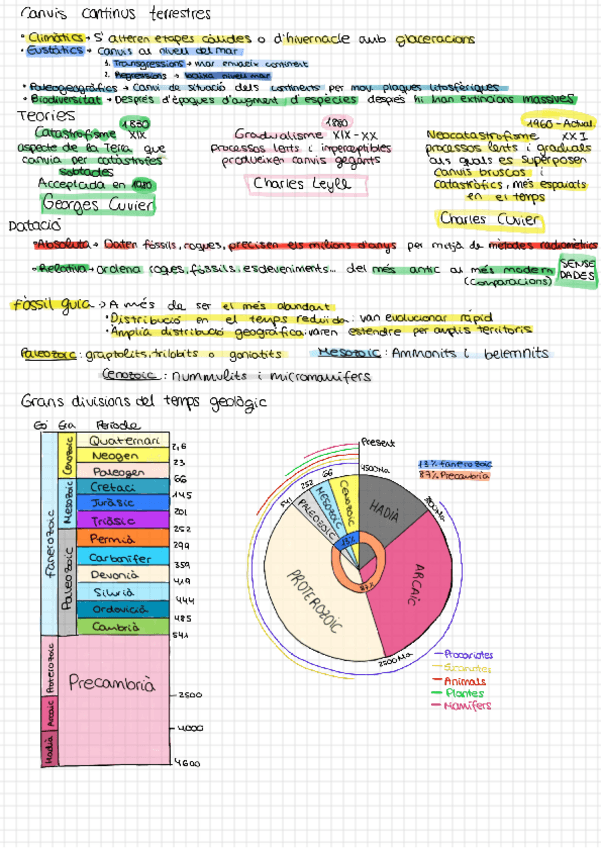 Canvis continus terrestres
• Climàtics → S'alteren etapes càlides o d'hivernacle amb glaceracions
• Eustàtics → Canvis al nivell del mar
1. Transgressions → mar envaeix continent
2. Regressions → baixa nivell mar
• Paleogeogràfics → Canvi de situació dels continents per mov. plaques litosfèriques
• Biodiversitat → Després d'èpoques d'augment d'espècies després hi han extincions massives
Teories
1830
Catastrofisme XIX
aspecte de la Terra que
canvia per catàstrofes
sobtades
Acceptada en 1830
Georges Cuvier
1880
Gradualisme XIX-XX
processos lents i imperceptibles
produeixen canvis gegants
Charles Leyll
1960-Actual
Neocatastrofisme XXI
processos lents i graduals
als quals es superposen
canvis bruscos i
catastròfics, més espaiats
en el temps
Charles Cuvier
Datació
• Absoluta → Daten fòssils, roques, precisen els milions d'anys per mitjà de mètodes radiomètrics
• Relativa → ordena roques, fòssils, esdeveniments... del més antic al més modern
(comparacions)
SENSE
DADES
Fòssil guia → • A més de ser el més abundant
• Distribució en el temps reduïda: van evolucionar ràpid
• Amplia distribució geogràfica: varen estendre per amplis territoris
Paleozoic: graptolits, trilobits o goniatits
Mesozoic: Ammonits i belemnits
Cenozoic: nummulits i micromamífers
Grans divisions del temps geològic
Eó Era Període
Fanerozoic
Cenozoic
Mesozoic
Paleozoic
Quaternari
2,6
Neogen
23
Paleogen
66
Cretaci
145
Juràsic
201
Triàsic
252
Permià
299
Carbonífer
359
Devonià
419
Silurià
444
Ordovicià
485
Cambrià
541
Proterozoic
Arcaic
Hadià
Precambrià
2500
4000
4600
Present
4500Ma
541
252
66
PALEOZOIC
MESOZOIC
CENOZOIC
HADIÀ
ARCAIC
PROTEROZOIC
13%
87%
2500Ma
13% Fanerozoic
87% Precambrià
— Procariotes
— Eucariotes
— Animals
— Plantes
— Mamífers